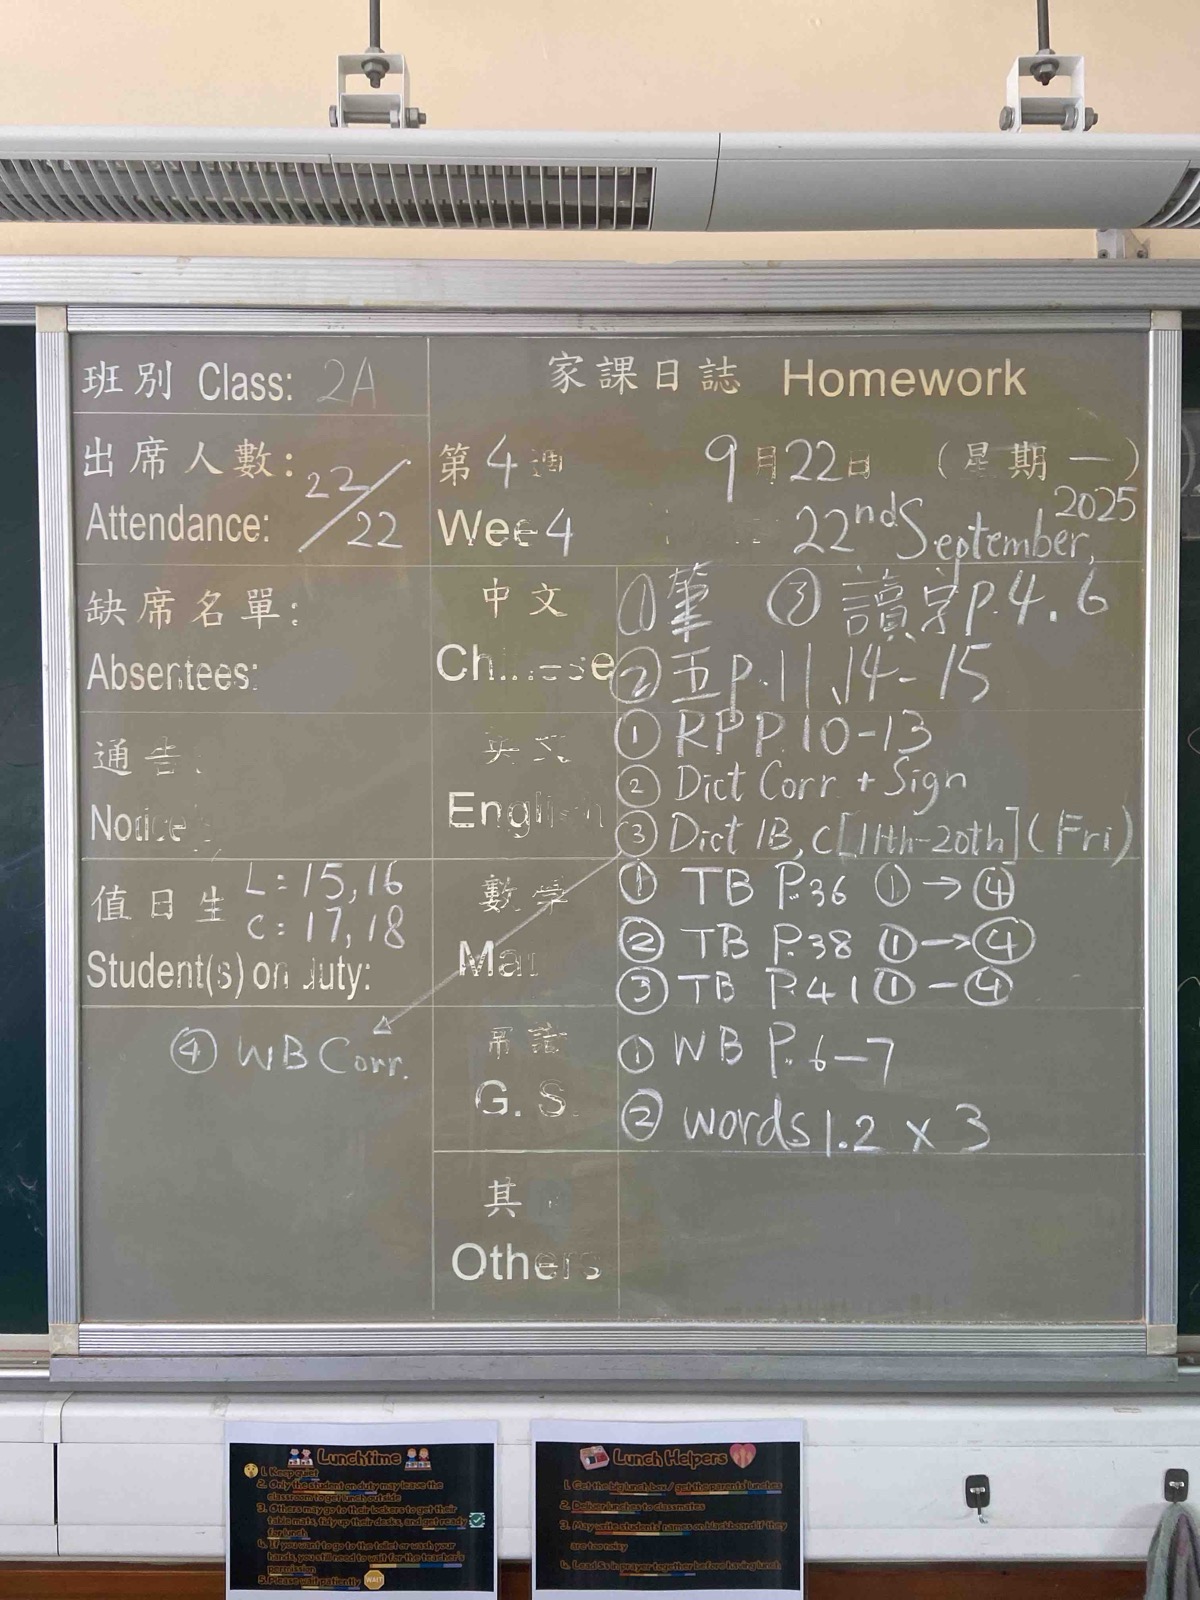 班別 Class: 2A
家課日誌 Homework
出席人數: 22/22
Attendance:
第4週 9月22日 (星期一)
Wee 4 22nd September, 2025
缺席名單:
Absentees:
中文
Chinese
① 筆 ③ 讀字p.4.6
② 五p.11、14-15
通告:
Notice
英文
English
① RP P.10-13
② Dict Corr + Sign
③ Dict 1B, C [11th-20th] (Fri)
值日生 L: 15, 16
C: 17, 18
Student(s) on duty:
數學
Ma
① TB P.36 ① → ④
② TB P.38 ① → ④
③ TB P.41 ① - ④
④ WB Corr.
常識
G. S.
① WB P.6-7
② words 1.2 x 3
其
Others
Lunchtime
1. Keep quiet
2. Only the student on duty may leave the
classroom to get lunch outside
3. Others may go to their lockers to get their
table mats, tidy up their desks, and get ready
for lunch
4. If you want to go to the toilet or wash your
hands, you still need to wait for the teacher's
permission
5. Please wait patiently WAIT
Lunch Helpers
1. Get the big lunch box / get the parents' lunches
2. Deliver lunches to classmates
3. May write students' names on blackboard if they
are too noisy
4. Lead Ss in prayer together before having lunch